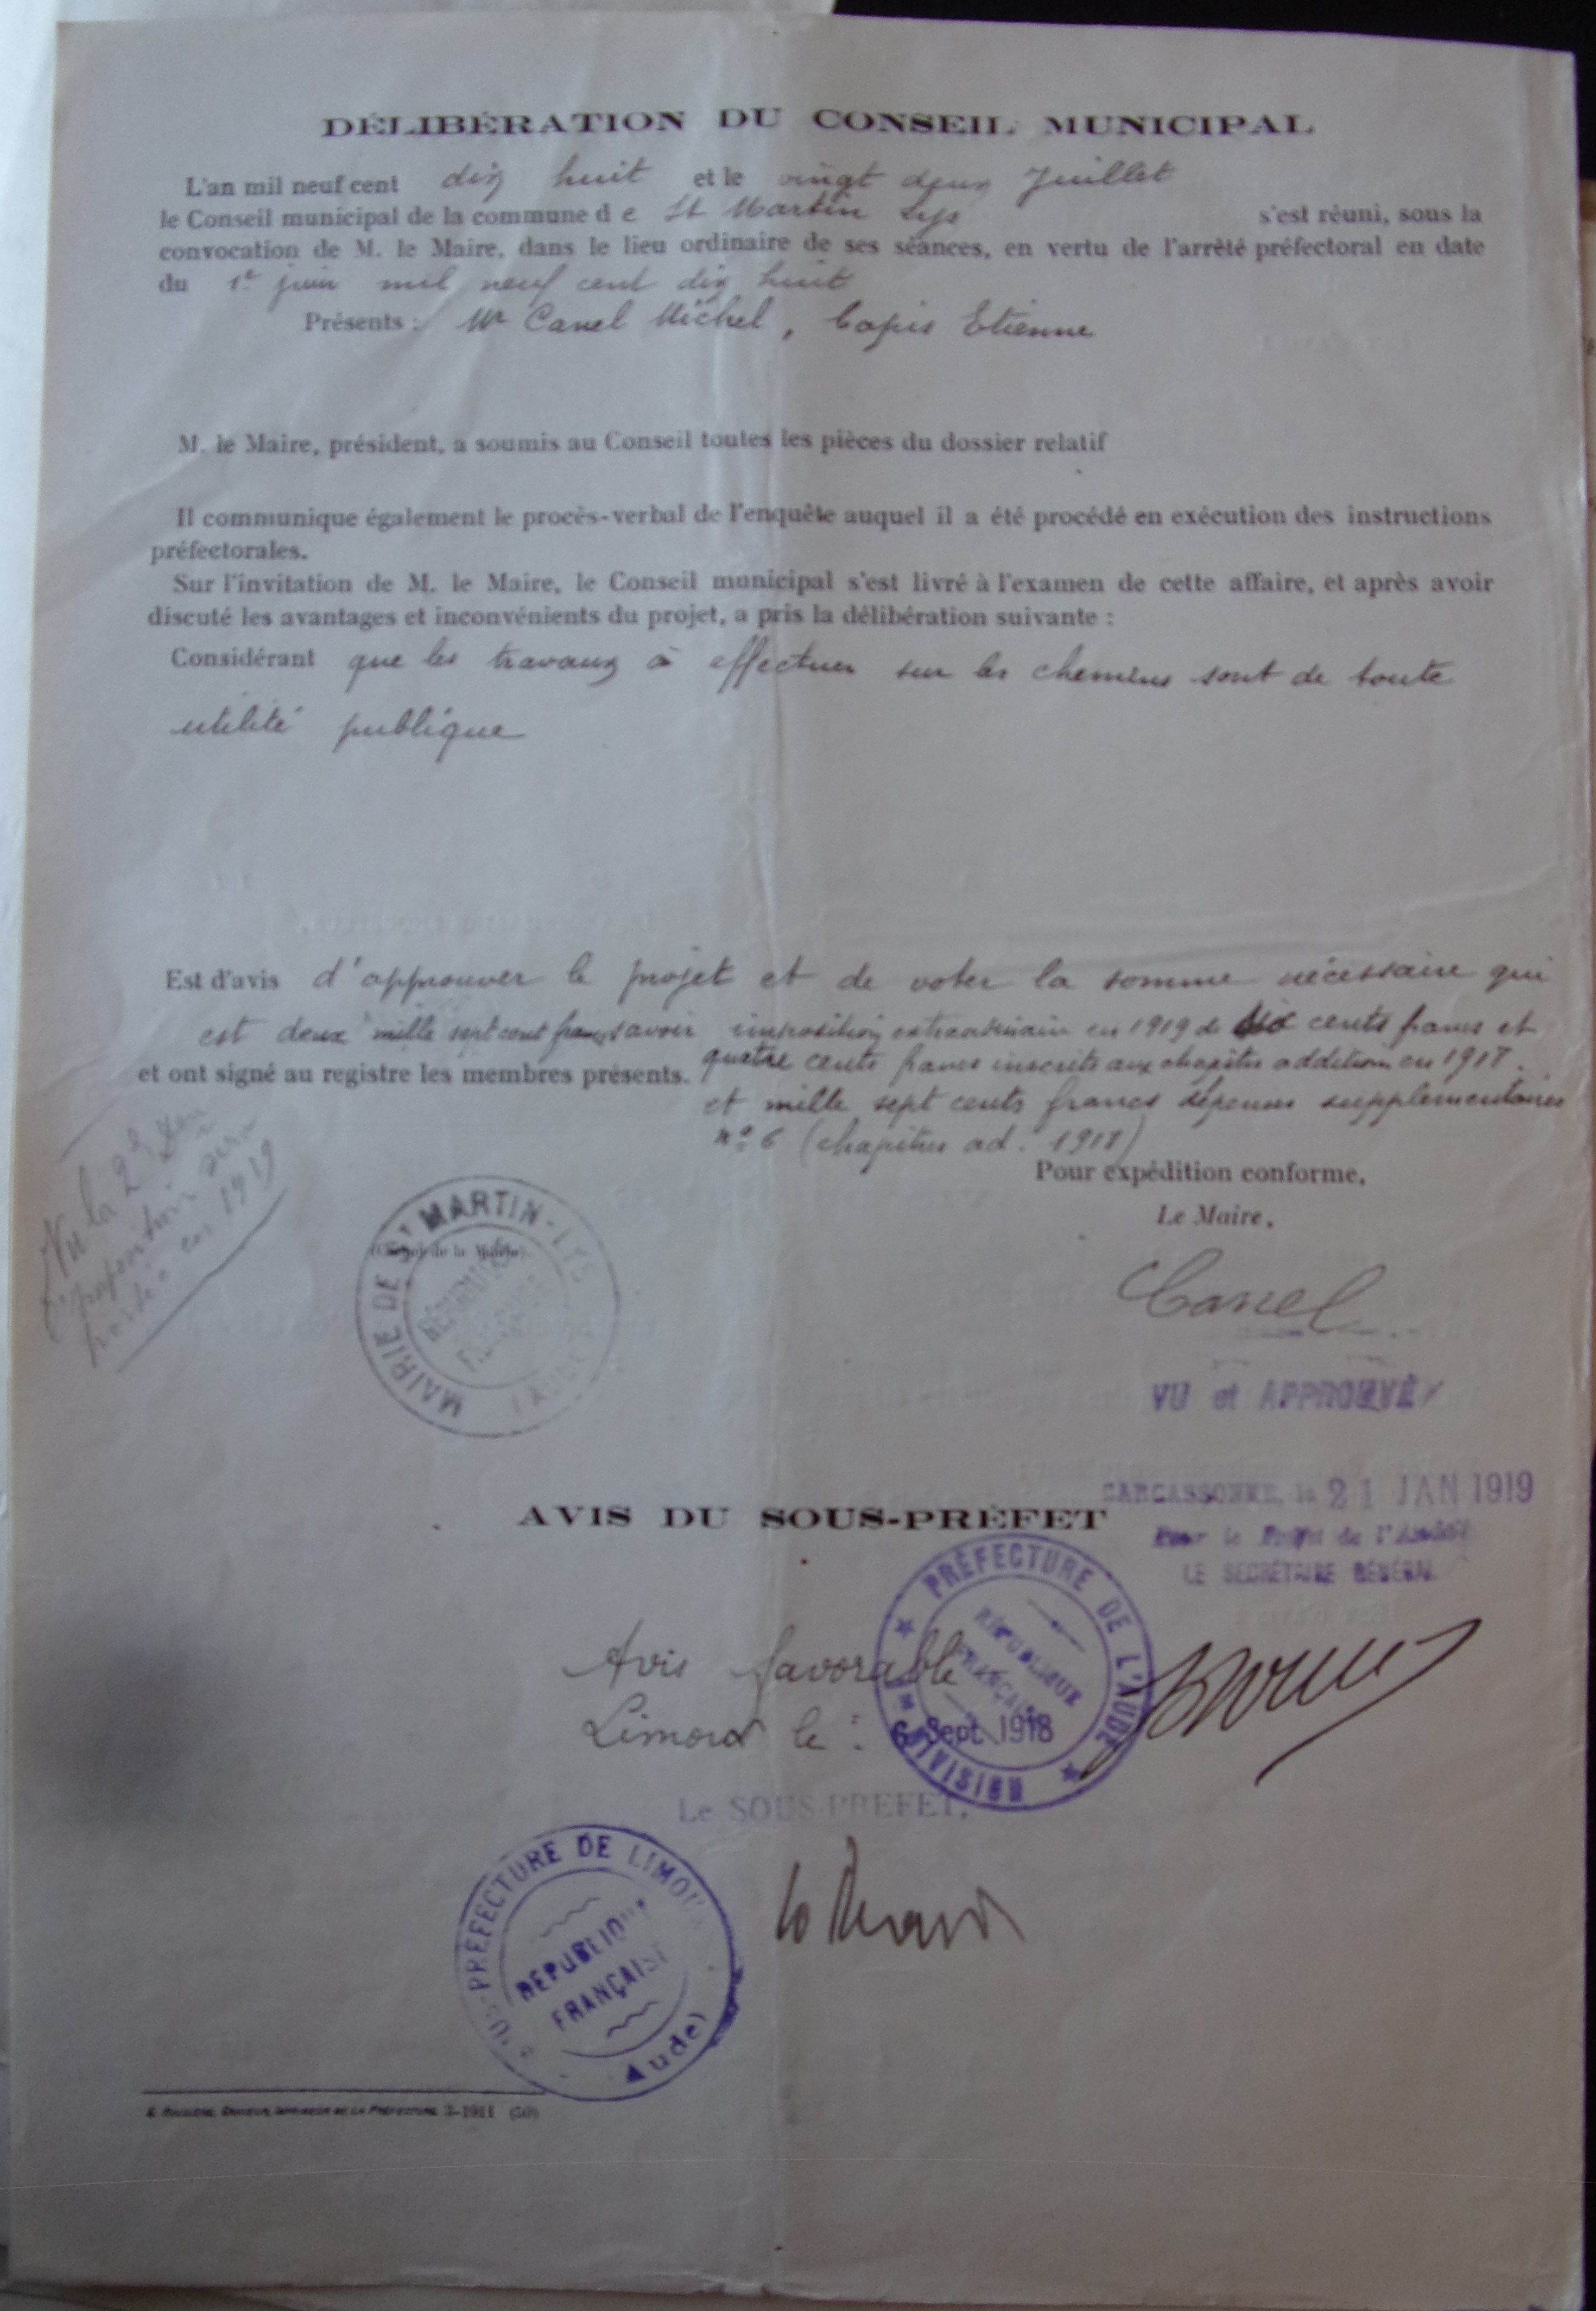 DÉLIBÉRATION DU CONSEIL MUNICIPAL
L'an mil neuf cent dix huit et le vingt deux Juillet
le Conseil municipal de la commune de St Martin Lys s'est réuni, sous la
convocation de M. le Maire, dans le lieu ordinaire de ses séances, en vertu de l'arrêté préfectoral en date
du 1er juin mil neuf cent dix huit
Présents : Mr Canel Michel, Capis Etienne
M. le Maire, président, a soumis au Conseil toutes les pièces du dossier relatif
Il communique également le procès-verbal de l'enquête auquel il a été procédé en exécution des instructions
préfectorales.
Sur l'invitation de M. le Maire, le Conseil municipal s'est livré à l'examen de cette affaire, et après avoir
discuté les avantages et inconvénients du projet, a pris la délibération suivante :
Considérant que les travaux à effectuer sur les chemins sont de toute
utilité publique
Est d'avis d'approuver le projet et de voter la somme nécessaire qui
est deux mille sept cent francs savoir imposition extraordinaire en 1919 de six cents francs et
quatre cents francs inscrits aux chapitres addition. en 1918.
et ont signé au registre les membres présents.
et mille sept cents francs dépenses supplémentaires
n° 6 (chapitres ad. 1918)
Pour expédition conforme,
Le Maire,
Vu la 2e
l'imposition sera
portée en 1919
MAIRIE DE ST MARTIN-LYS
(Cachet de la Mairie).
RÉPUBLIQUE
FRANÇAISE
(AUDE)
Canel
VU et APPROUVÉ
CARCASSONNE, le 21 JAN 1919
Pour le Préfet de l'Aude
LE SECRÉTAIRE GÉNÉRAL
AVIS DU SOUS-PRÉFET
PRÉFECTURE DE L'AUDE
RÉPUBLIQUE
FRANÇAISE
DIVISION
Avis favorable
Limoux le : 6 Sept. 1918
Le SOUS-PREFET,
SOUS-PRÉFECTURE DE LIMOUX
REPUBLIQUE
FRANÇAISE
(Aude)
IMPRIMEUR DE LA PRÉFECTURE 3-1911